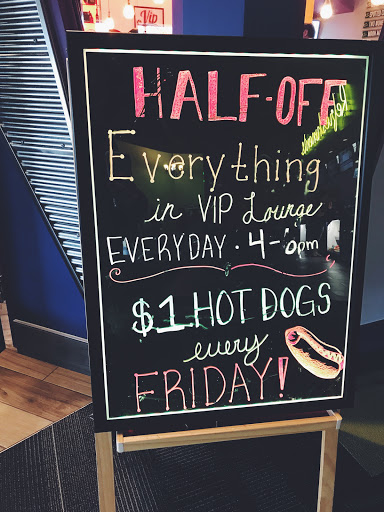 Vip
HALF-OFF
Everything
in VIP Lounge
EVERYDAY • 4-6pm
$1 HOT DOGS
every
FRIDAY!